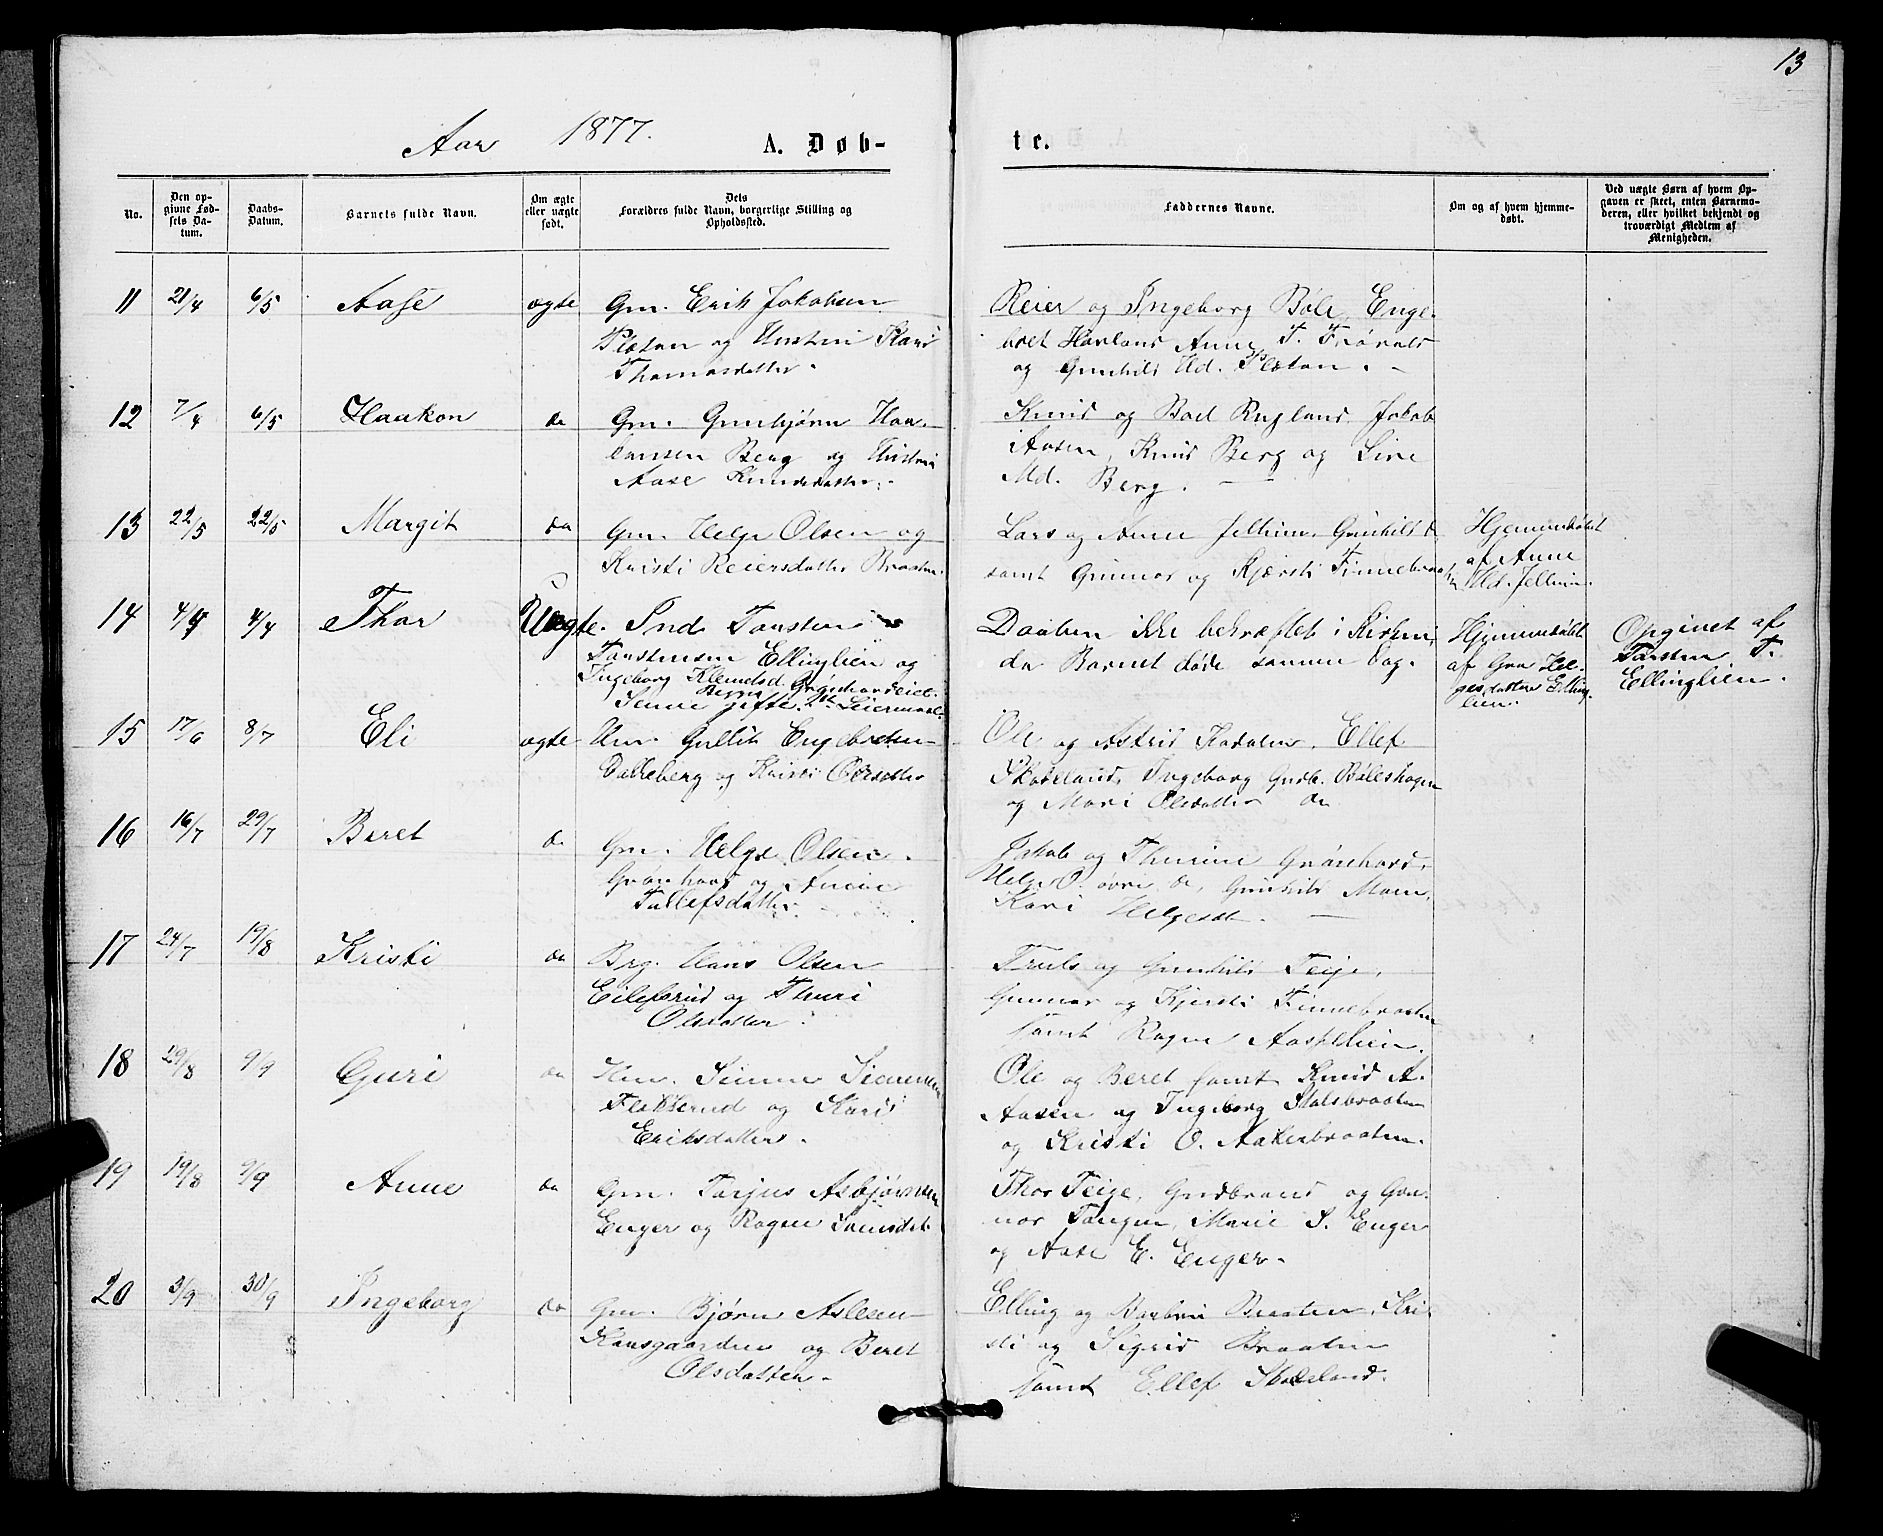 13
Aar 1877. A. Døb-
te.
No.
Den op-
givne Fød-
sels Da-
tum.
Daabs-
Datum.
Barnets fulde Navn.
Om ægte
eller uægte
født.
Dets
Forældres fulde Navn, borgerlige Stilling og
Opholdssted.
Faddernes Navne.
Om og af hvem hjemme-
døbt.
Ved uægte Børn af hvem Op-
gaven er skeet, enten Barnemo-
deren, eller hvilket bekjendt og
troværdigt Medlem af
Menigheden.
11 21/4 6/5 Aase ægte Gm. Erik Jakobsen
Pladsen og Hustru Kari
Thomasdatter.
Reier og Ingeborg Bøle, Enge-
bret Havland Anne T.
og Gunhild Hd. Pladsen.
12 7/4 6/5 Haakon do Gm. Gunbjørn Haa-
Berg og Hustru
Aase Knudsdatter.
Knud og Boel Rugland Jakob
Aasen, Knud Berg og Live
Md. Berg.
13 22/5 22/5 Margit do Gm. Helge Olsen og
Kristi Reiersdatter Braaten.
Lars og Anne Jellum, Gunhild D
samt Gunnar og Kjersti Finnebraaten
Hjemmedøbt
af Anne
Hd. Jellum.
14 4/4 4/4 Thor Uægte. Ind. Torsten
Torstensen Ellinglien og
Ingeborg Klemetsd. Grønhovdeiet.
Senne gifte. 2det Leiermaal.
Daaben ikke bekræftet i Kirken,
da Barnet døde samme Dag.
Hjemmedøbt
af Gro Hel-
gesdatter Elling-
lien.
Opgivet af
Torsten T.
Ellinglien.
15 17/6 8/7 Eli ægte Hm. Gullik Engebretsen
Dalkeberg og Kristi Olsdatter
Ole og Astrid Kadalen, Ellef
Skaveland, Ingeborg Gudb. Bøleshagen
og Mari Olsdatter do
16 16/7 29/7 Beret do Gm. Helge Olsen
Grønhovd og Anne
Tollefsdatter.
Jakob og Thurine Grønhovd,
Helge O. øvre do, Gunhild Moen,
Kari Helgesdt.
17 24/7 19/8 Kristi do Brg. Hans Olsen
Eilefsrud og Thuri
Olsdatter.
Truls og Gunhild Teije,
Gunnar og Kjersti Finnebraaten
samt Ragne Aaslilien.
18 29/8 9/9 Guri do Hm. Simen Simensen
Flakkerud og Kari
Eriksdatter.
Ole og Beret samt Knud A.
Aasen og Ingeborg Skalsbraaten
og Kristi O. Aakerbraaten.
19 19/8 9/9 Anne do Gm. Tarjus Asbjørnsen
Enger og Ragne
Thor Teige, Gudbrand og Gun-
nor Tangen, Marie S. Enger
og Aase E. Enger.
20 3/9 30/9 Ingeborg do Gm. Bjørn Aslesen
Kaasgaarden og Beret
Olsdatter.
Elling og Barbra Braaten, Kri-
sti og Sigrid Braaten
samt Ellef Skaveland.